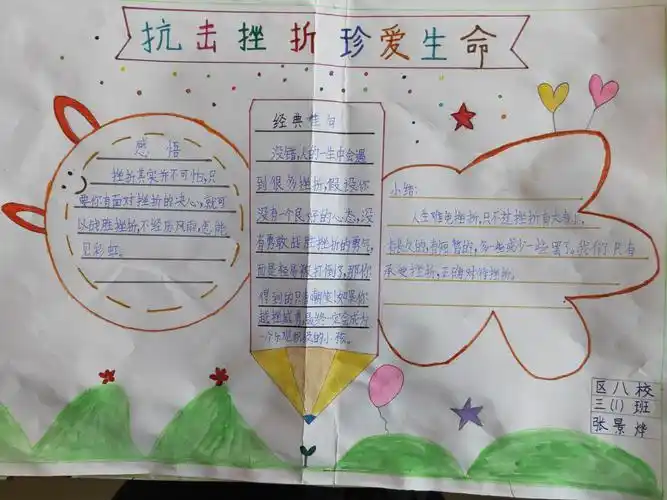 抗击挫折珍爱生命
感悟
挫折其实并不可怕,只
要你有面对挫折的决心,就可
以战胜挫折,不经历风雨,怎能
见彩虹。
经典佳句
没错,人的一生中会遇
到很多挫折,假设你
没有一个良好的心态,没
有勇敢战胜挫折的勇气,
而是轻易被打倒了,那你
得到的只有嘲笑!如果你
越挫越勇,最终一定会成为
一个乐观积极的小孩。
小结:
人生难免挫折,只不过挫折有大有小,
有长久的,有短暂的,多一些或少一些罢了。我们只有
承受挫折,正确对待挫折。
区八校
三(1)班
张景烨